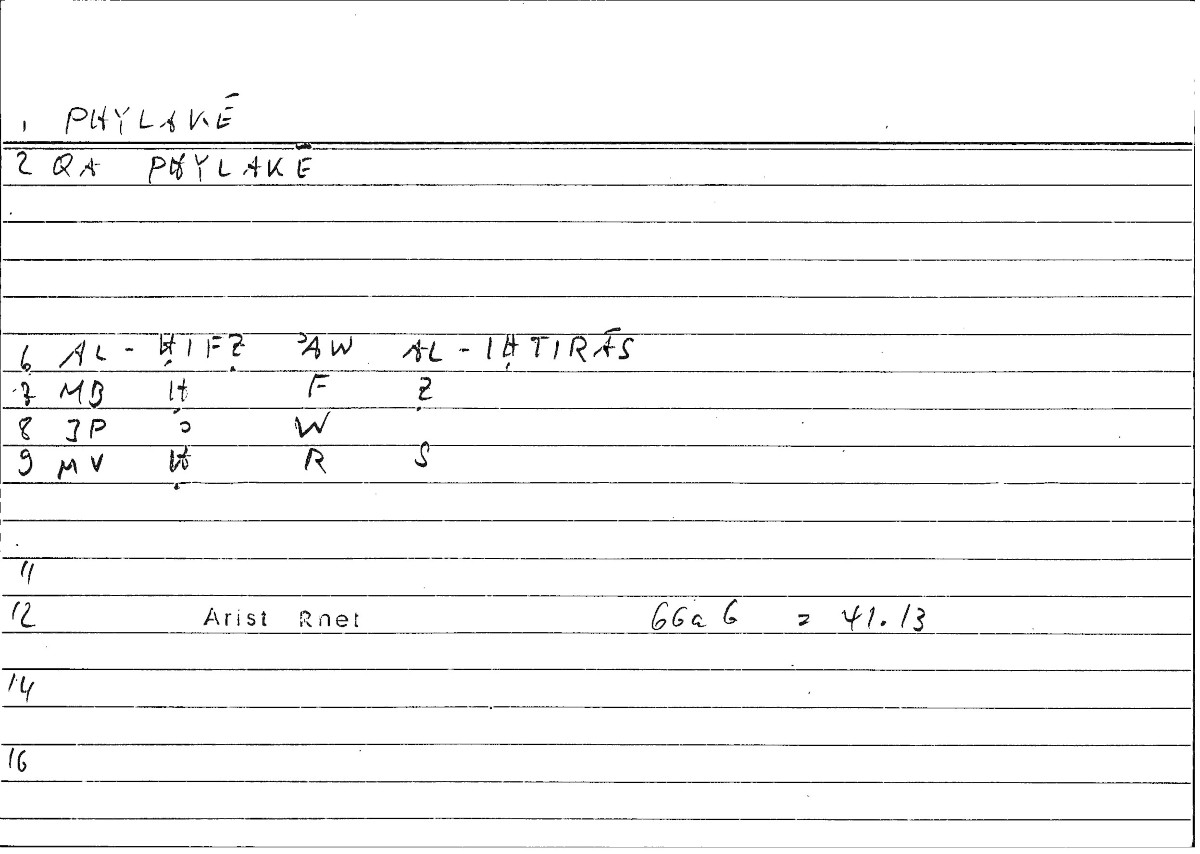 1 PHYLAKĒ
2 QA PHYLAKĒ
6 AL-ḤIFẒ ʾAW AL-IḤTIRĀS
7 MB Ḥ F Ẓ
8 JP ʾ W
9 MV Ḥ R S
11
12 Arist Rhet 66a6 = 41.13
14
16